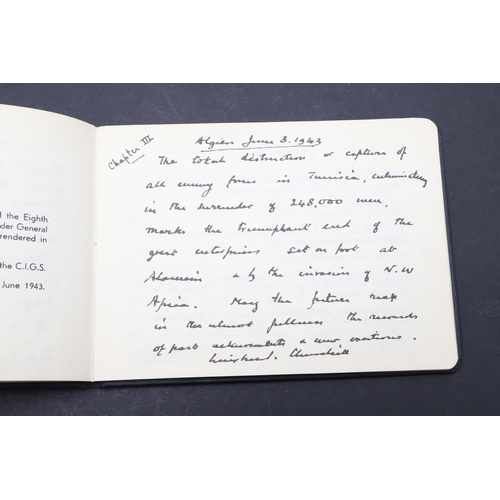 d the Eighth
der General
rendered in
the C.I.G.S.
June 1943.
Chapter III
Algiers June 3. 1943
The total destruction or capture of
all enemy forces in Tunisia, culminating
in the surrender of 248,000 men,
marks the triumphant end of the
great enterprises set on foot at
Alamein & by the invasion of N.W
Africa. May the future reap
in the utmost fullness the rewards
of past achievements & new exertions.
Winston S. Churchill